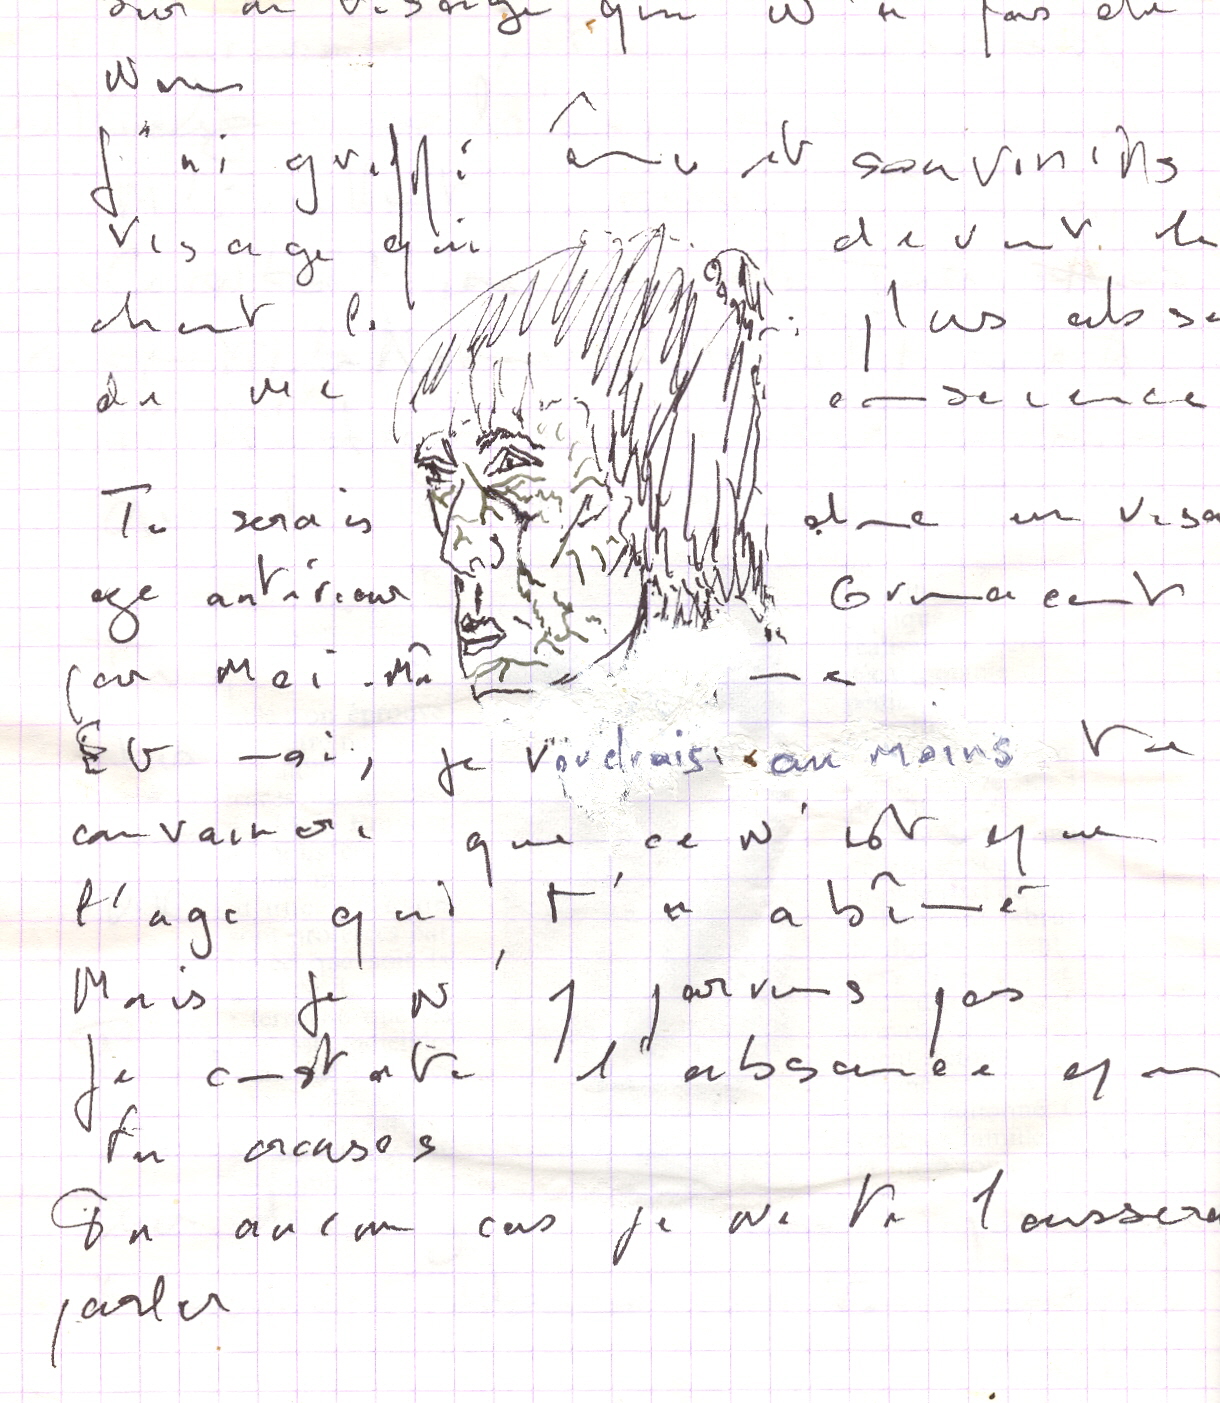 sur un visage qui n'a pas de
nom
J'ai greffé âme et souvenirs
visage qui devint le
chant le plus abs
de ma conscience
Tu serais donc un visa
age antérieur Grimacent
par moi-mê me
Et moi, je voudrais au moins te
convaincre que ce n'est que
l'age qui t'a abîmé
Mais je n'y parviens pas
Je constate l'absence que
tu creuses
En aucun cas je ne te laissera
parler